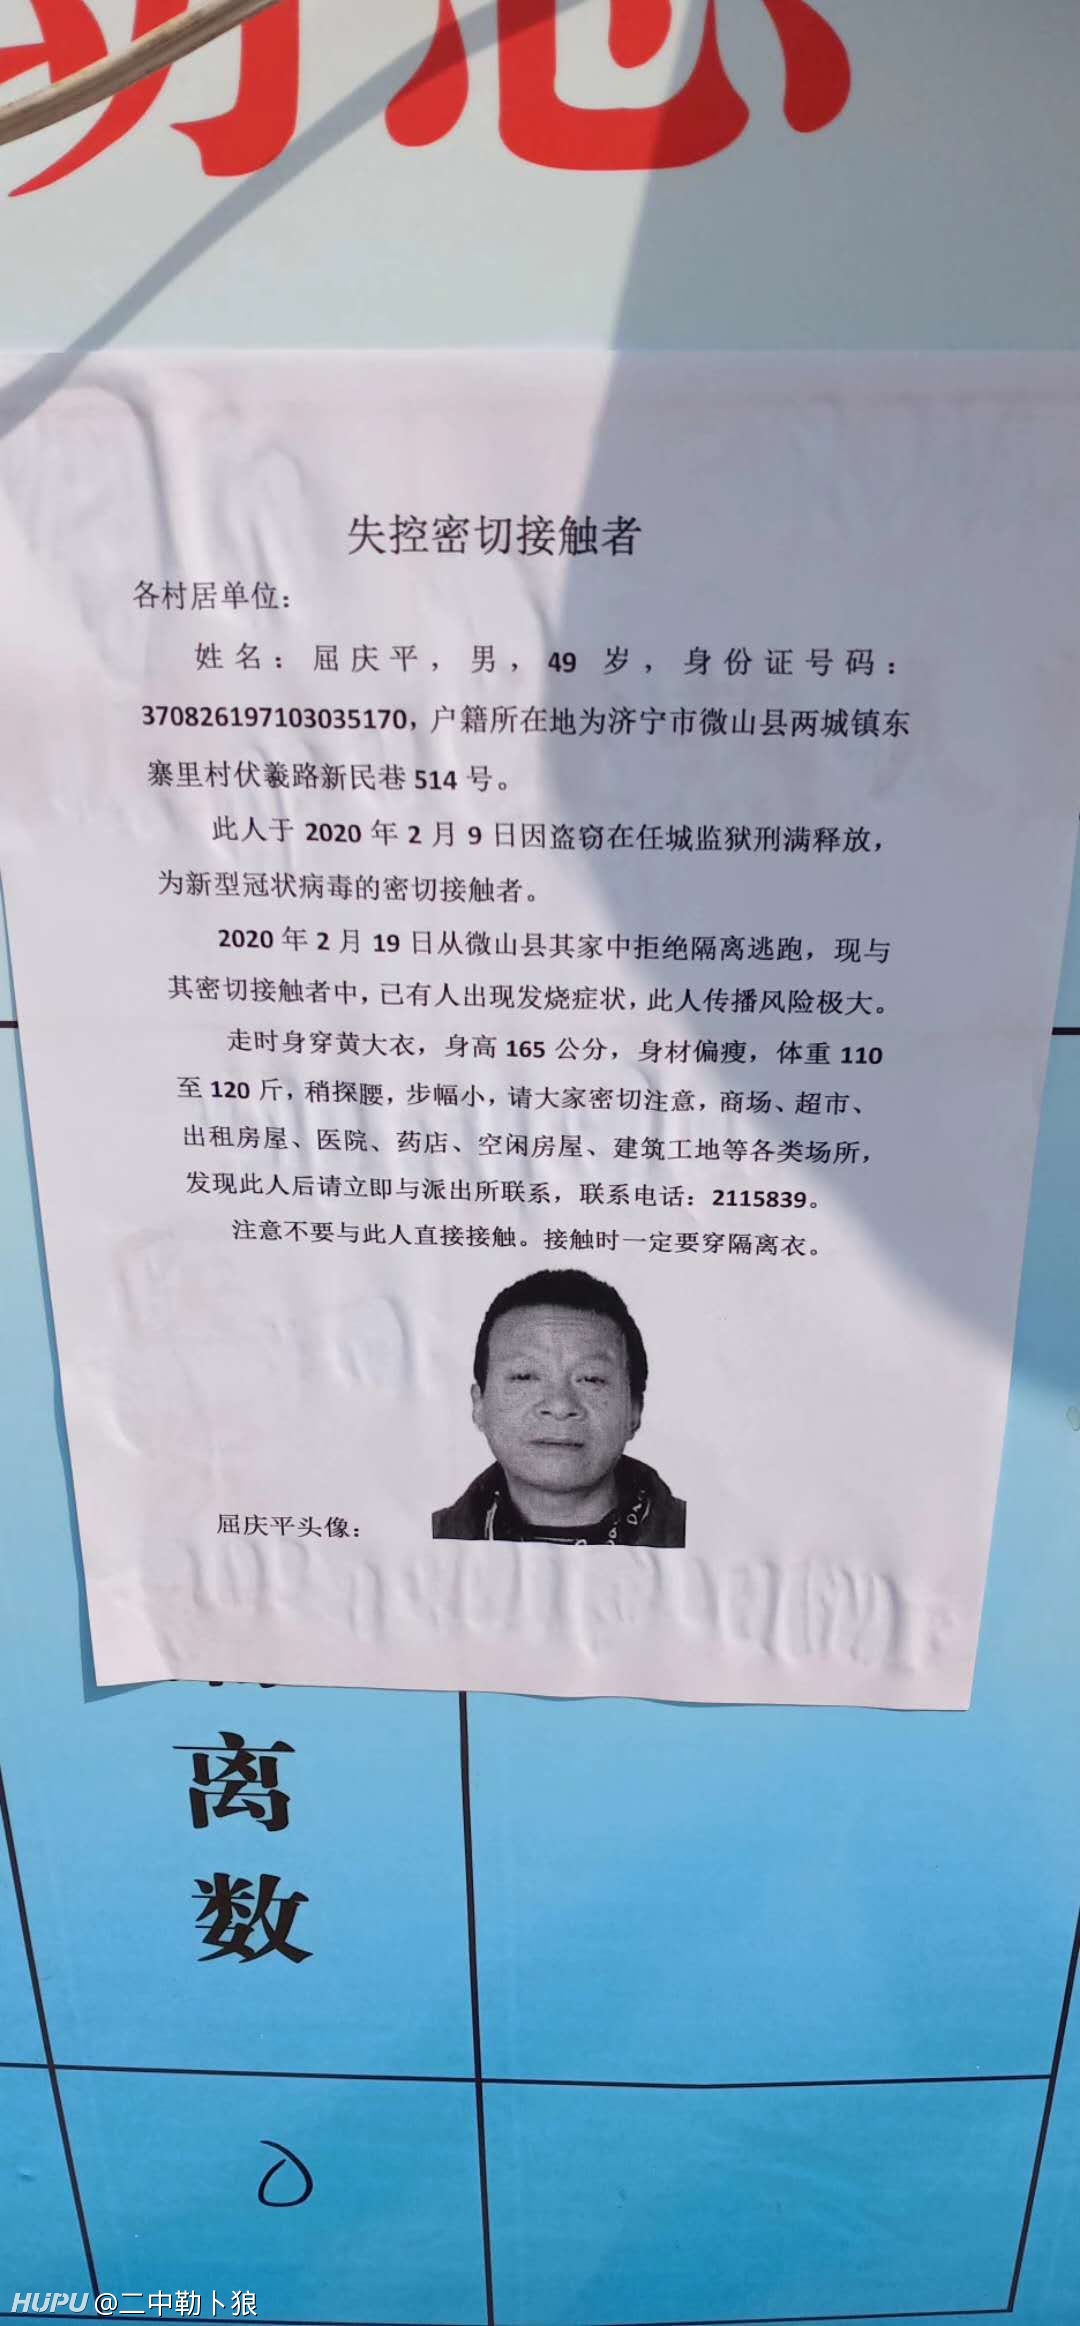 失控密切接触者
各村居单位：
姓名：屈庆平，男，49 岁，身份证号码：
370826197103035170，户籍所在地为济宁市微山县两城镇东
寨里村伏羲路新民巷 514 号。
此人于 2020 年 2 月 9 日因盗窃在任城监狱刑满释放，
为新型冠状病毒的密切接触者。
2020 年 2 月 19 日从微山县其家中拒绝隔离逃跑，现与
其密切接触者中，已有人出现发烧症状，此人传播风险极大。
走时身穿黄大衣，身高 165 公分，身材偏瘦，体重 110
至 120 斤，稍探腰，步幅小，请大家密切注意，商场、超市、
出租房屋、医院、药店、空闲房屋、建筑工地等各类场所，
发现此人后请立即与派出所联系，联系电话：2115839。
注意不要与此人直接接触。接触时一定要穿隔离衣。
屈庆平头像：
离
数
0
HUPU @二中勒卜狼